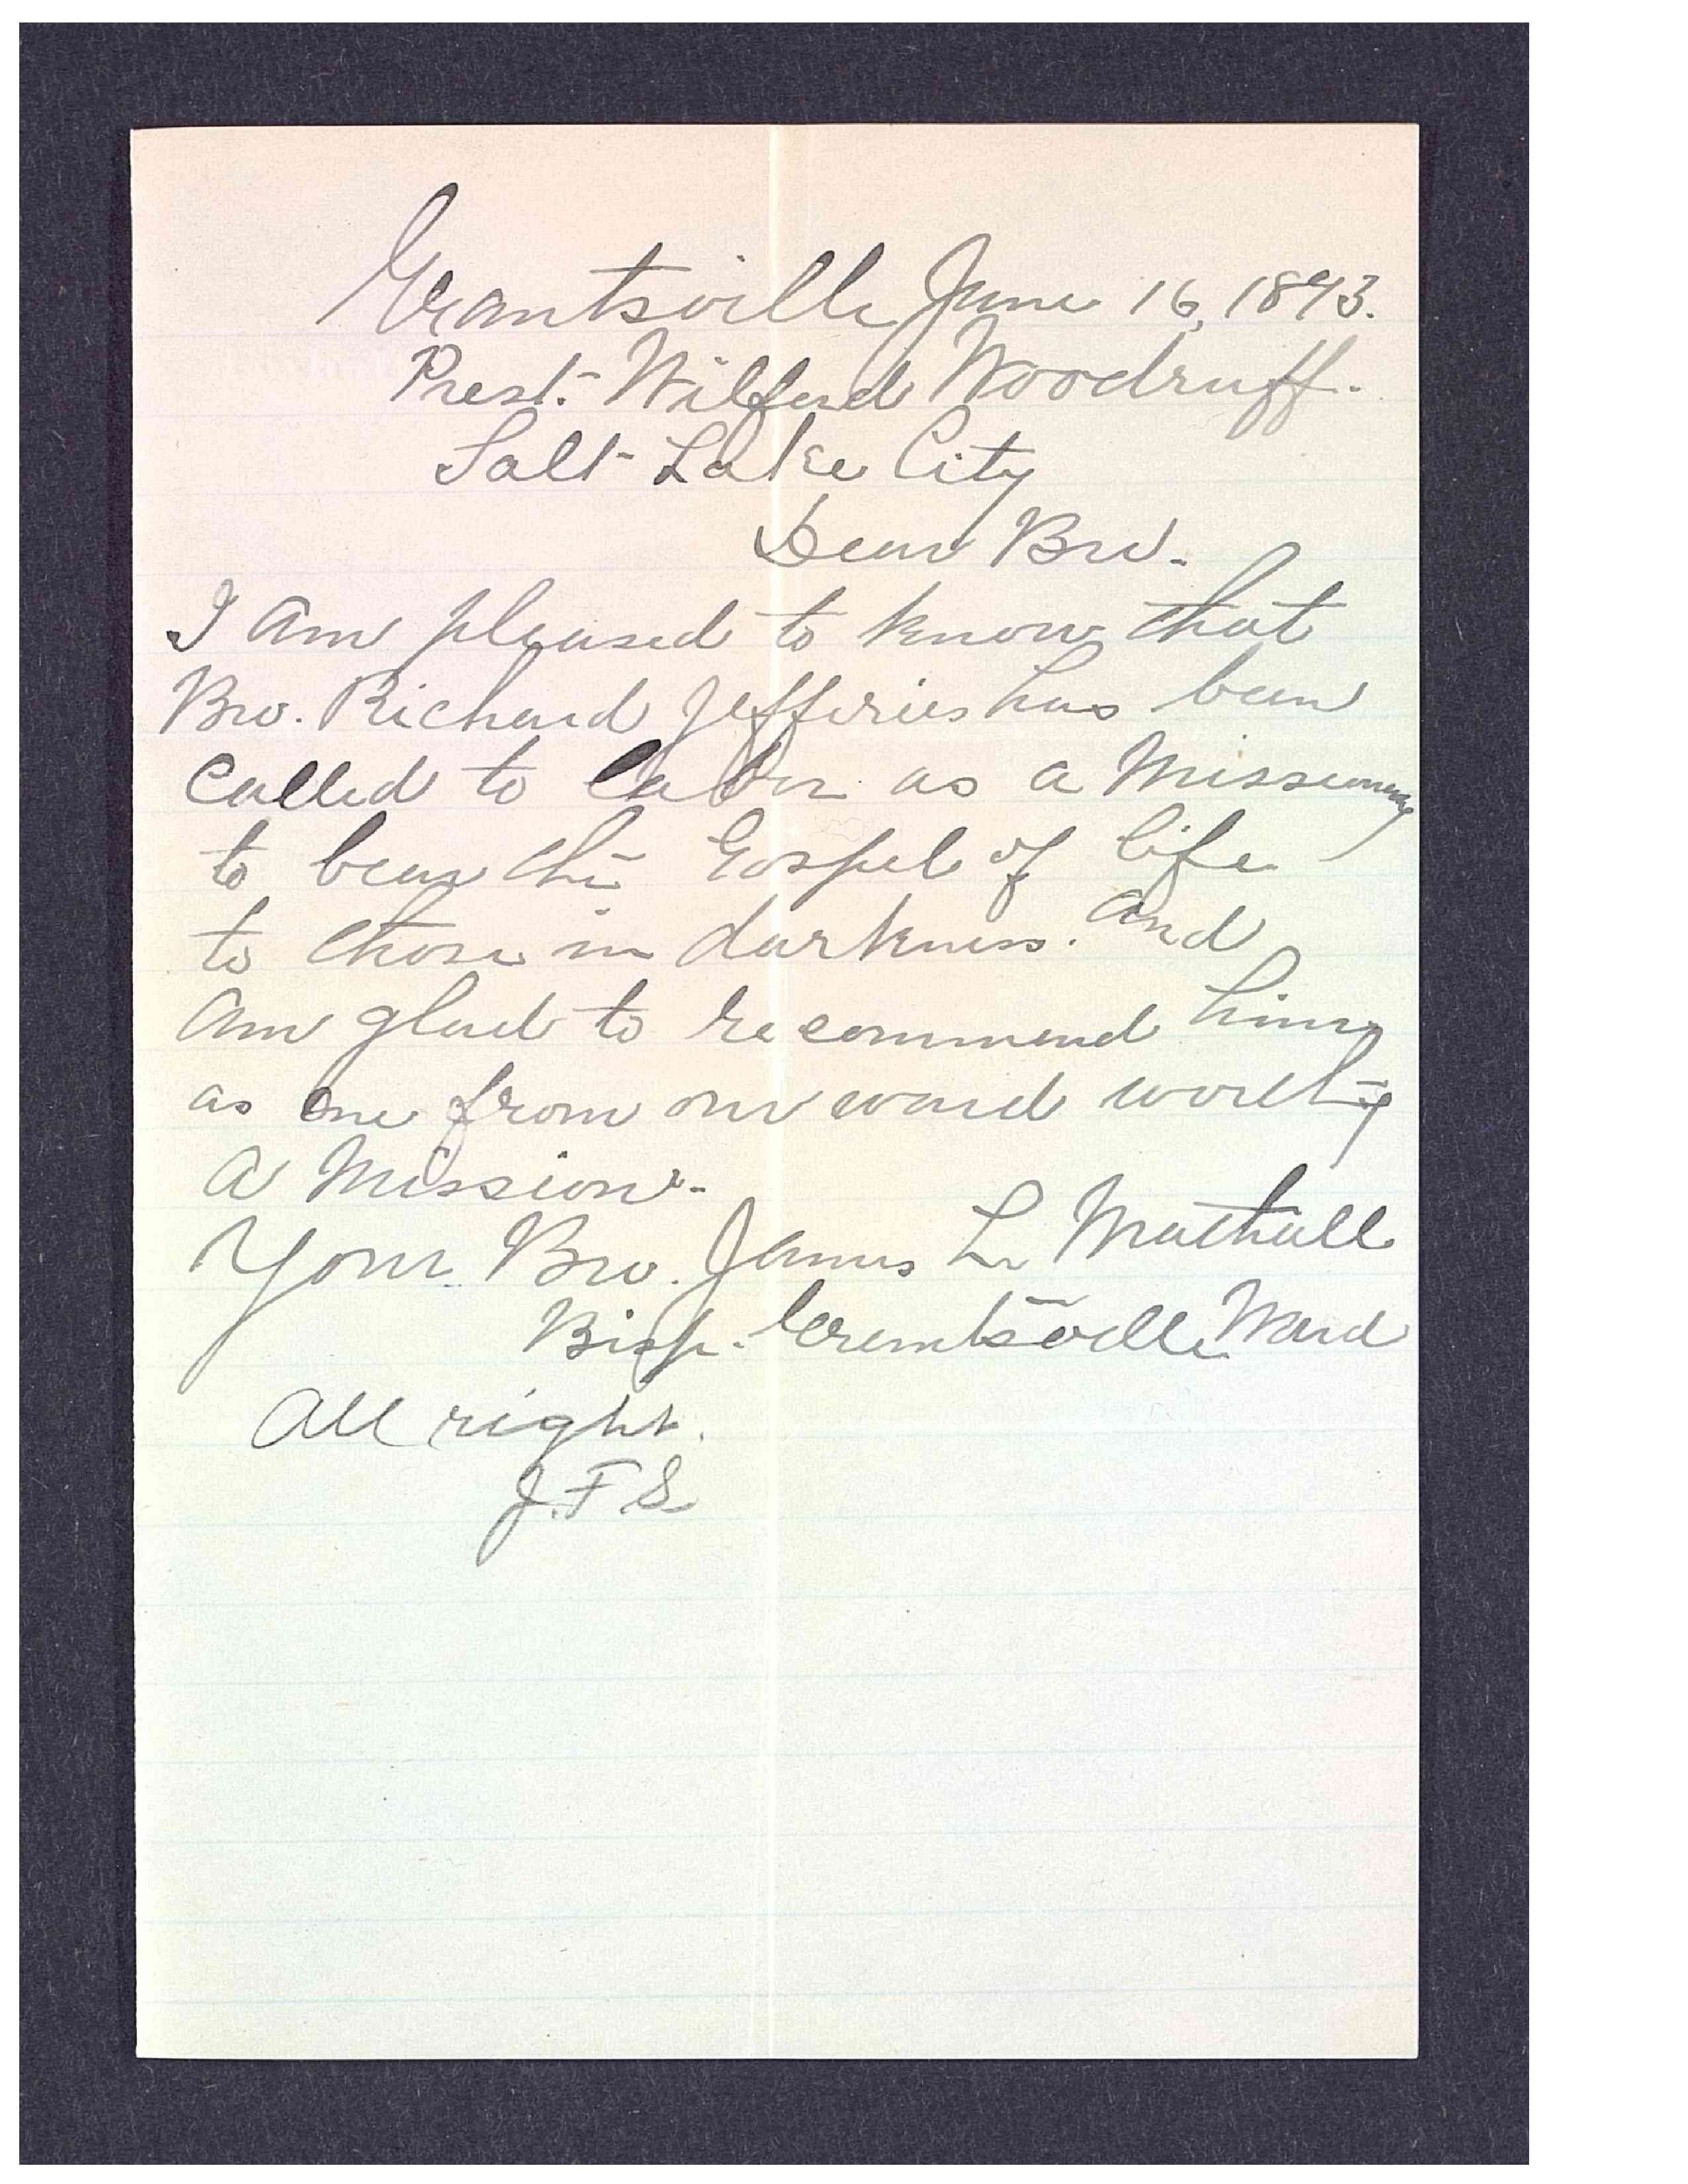 Grantsville June 16, 1893.
Prest. Wilford Woodruff.
Salt Lake City
Dear Bro.
I am pleased to know that
Bro. Richard Jefferies has been
called to labor as a Missionary
to bear the Gospel of life
to those in darkness. and
am glad to recommend him
as one from our ward worthy
a Mission.
Your Bro. James L Wrathall
Bisp. Grantsville Ward
All right.
J.F.S.